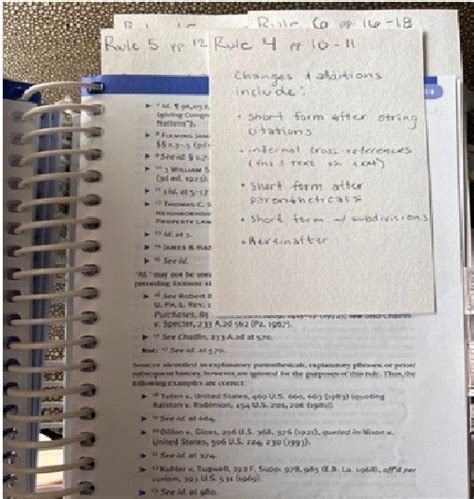 Rule 6a pp 16-18
Rule 5 pp 12
Rule 4 pp 10-11
Changes & additions
include:
• short form after string
citations
• internal cross-references
• short form after
parentheticals
• short form w/ subdivisions
• Hereinafter
▶ 7 Id. ¶ 96,057,
(giving Congr
Nations").
▶ 8 FLEMING JAM
▶ 9 See id. §
▶ 10 3 WILLIAM S
(9d ed. 1973).
▶ 11 1 id. at 5-17
▶ 12 THOMAS C. S
NEIGHBORHOO
PROPERTY LAW
▶ 13 Id. at 3.
▶ 14 JAMES &
▶ 15 See id.
"Id." may not be used
preceding footnote ci
▶ 16 See Robert B
U. PA. L. REV. 1
Purchases, 85
v. Specter, 233 A.2d 562 (Pa. 1967).
▶ 17 See Chaffin, 233 A.2d at 570.
Not: 17 See id. at 570.
Sources identified in explanatory parentheticals, explanatory phrases, or prior/
subsequent history, however, are ignored for the purposes of this rule. Thus, the
following examples are correct:
▶ 18 Tuten v. United States, 460 U.S. 660, 663 (1983) (quoting
Ralston v. Robinson, 454 U.S. 201, 206 (1981)).
▶ 19 See id. at 664.
▶ 20 Dillon v. Gloss, 256 U.S. 368, 376 (1921), quoted in Nixon v.
United States, 506 U.S. 224, 230 (1993).
▶ 21 See id. at
▶ Kohler v. Tugwell, 292 F. Supp. 978, 985 (E.D. La. 1968), aff'd per
curiam, 393 U.S. 531 (1969).
▶ See id. at 980.